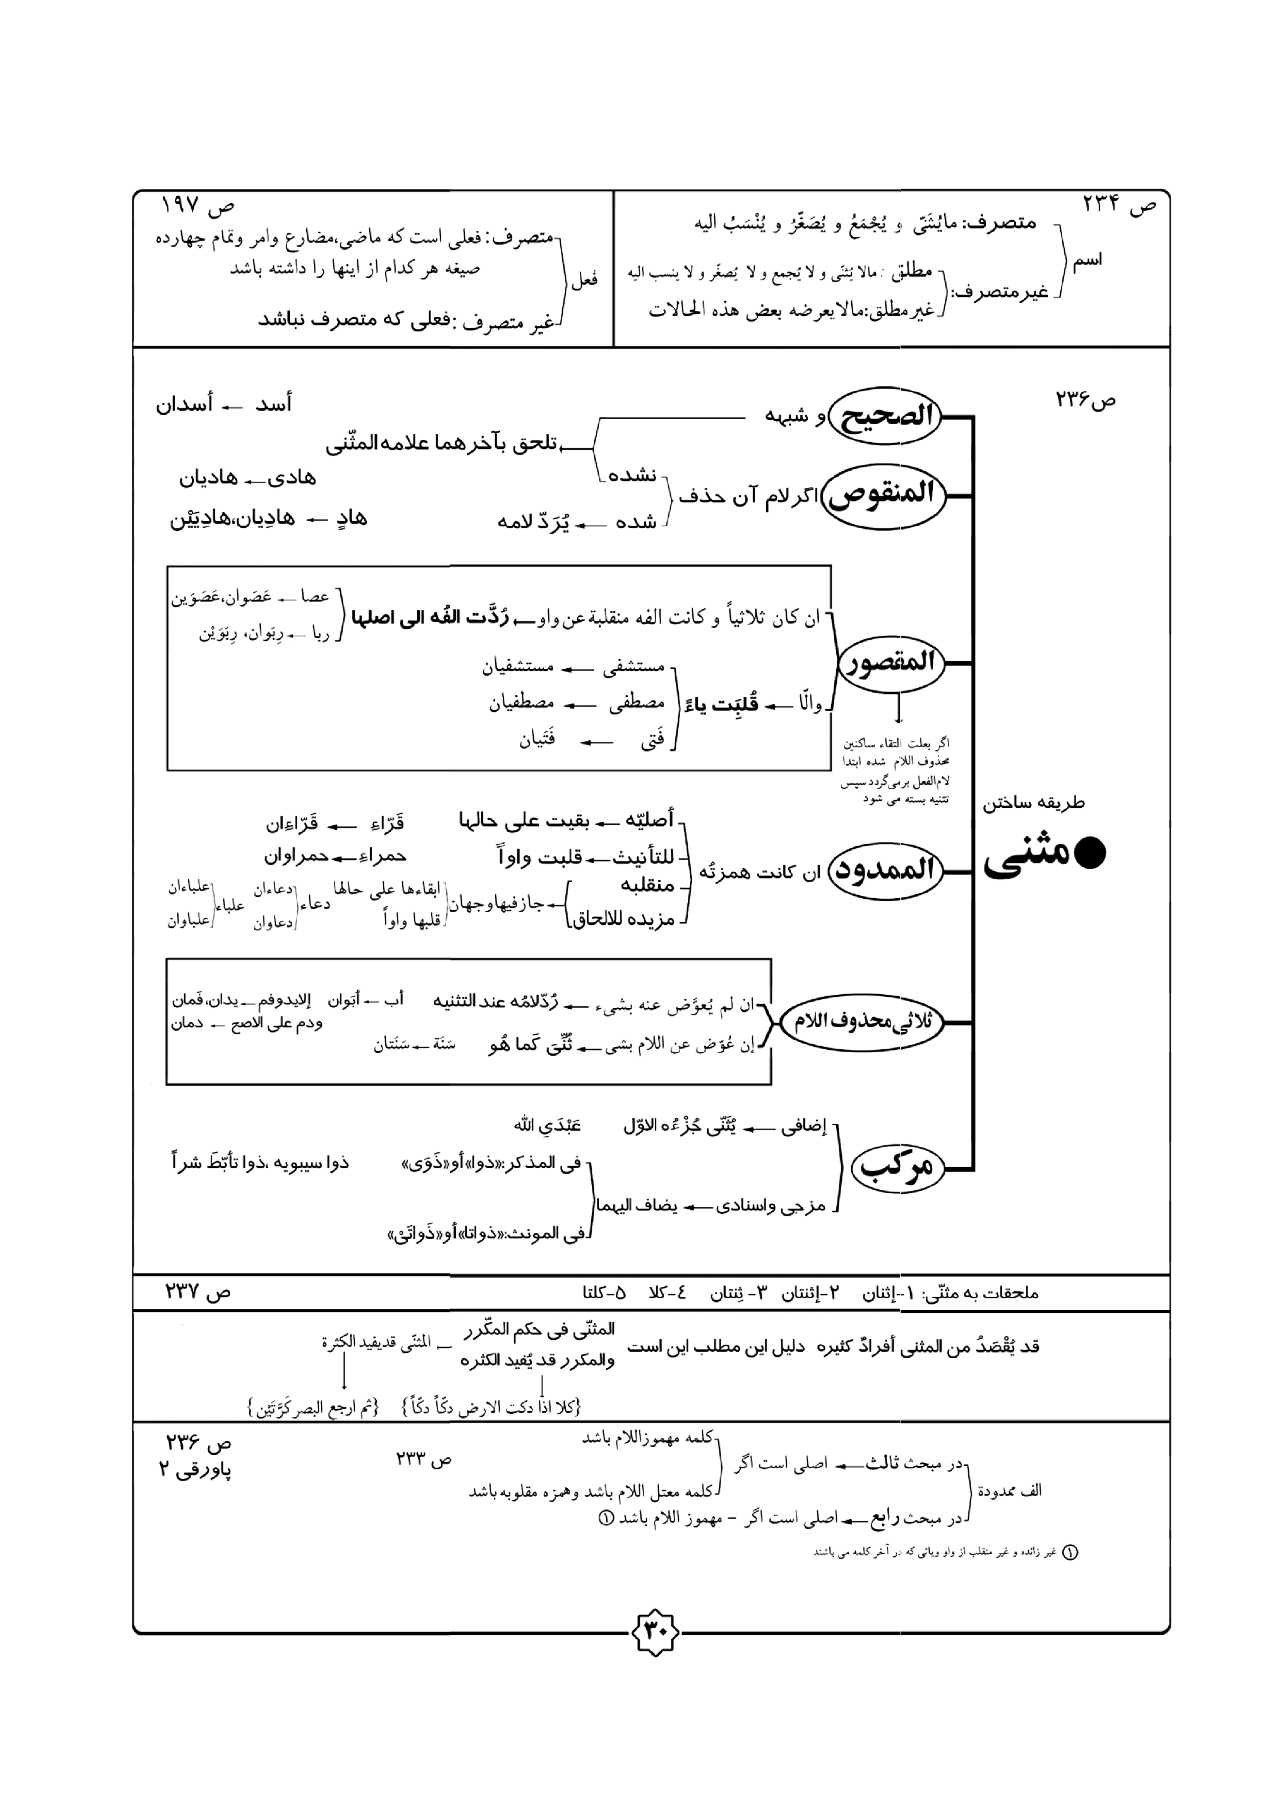 ص ۲۳۴
اسم
متصرف: مایُثَنّی و یُجْمَعُ و یُصَغَّرُ و یُنْسَبُ الیه
غیر متصرف:
مطلق : مالا یُثنّی و لا یُجمع و لا یُصغّر و لا ینسب الیه
غیر مطلق: مالایعرضه بعض هذه الحالات
ص ۱۹۷
فعل
متصرف: فعلی است که ماضی،مضارع وامر وتمام چهارده
صیغه هر کدام از اینها را داشته باشد
غیر متصرف :فعلی که متصرف نباشد
ص۲۳۶
طریقه ساختن
مثنی
الصحیح و شبهه
تلحق بآخرهما علامه المثّنی
أسد ← أسدان
المنقوص اگر لام آن حذف
نشده
هادی ← هادیان
شده ← یُرَدّ لامه
هادٍ ← هادِیان،هادِیَیْن
المقصور
ان کان ثلاثیاً و کانت الفه منقلبة عن واو ← رُدَّت الفُه الی اصلها
عصا ← عَصَوان،عَصَوَین
ربا ← رِبَوان، رِبَوَیْن
والّا ← قُلبَِت یاءً
مستشفی ← مستشفیان
مصطفی ← مصطفیان
فَتی ← فَتَیان
اگر بعلت التقاء ساکنین
محذوف اللام شده ابتدا
لام‌الفعل برمی‌گردد سپس
تثنیه بسته می شود
الممدود ان کانت همزتُه
أصلیّه ← بقیت علی حالها
قَرّاء ← قَرّاءان
للتأنیث ← قلبت واواً
حمراء ← حمراوان
منقلبه
مزیده للالحاق
← جاز فیها وجهان
ابقاءها علی حالها
قلبها واواً
دعاء
دعاءان
دعاوان
علباء
علباءان
علباوان
ثلاثی محذوف اللام
ان لم یُعوَّض عنه بشیء ← رُدّلامُه عند التثنیه
أب ← أبَوان
إلایدوفم ← یدان،فَمان
ودم علی الاصح ← دمان
إن عُوّض عن اللام بشی ← ثُنِّیَ کَما هُو
سَنَة ← سَنَتان
مرکب
إضافی ← یُثَنّی جُزْءُه الاوّل
عَبْدَیِ الله
مزجی واسنادی ← یضاف الیهما
فی المذکر:«ذوا» أو«ذَوَی»
ذوا سیبویه ،ذوا تأبّطَ شراً
فی المونث:«ذواتا» أو«ذَواتَیْ»
ملحقات به مثنّی: ۱-إثنان ۲-إثنتان ۳- ثِنتان ٤-کلا ۵-کلتا
ص ۲۳۷
قد یُقْصَدُ من المثنی أفرادٌ کثیره دلیل این مطلب این است
المثنّی فی حکم المکّرر
والمکرر قد یُفید الکثره
← المثنّی قدیفید الکثرة
{کلا اذا دکت الارض دکّاً دکّاً}
{ثم ارجع البصر کَرَّتَیْن}
ص ۲۳۶
پاورقی ۲
الف ممدودة
در مبحث ثالث ← اصلی است اگر
کلمه مهموزاللام باشد
ص ۲۳۳
کلمه معتل اللام باشد وهمزه مقلوبه باشد
در مبحث رابع ← اصلی است اگر – مهموز اللام باشد ①
① غیر زائده و غیر منقلب از واو ویائی که در آخر کلمه می باشند
۳۰